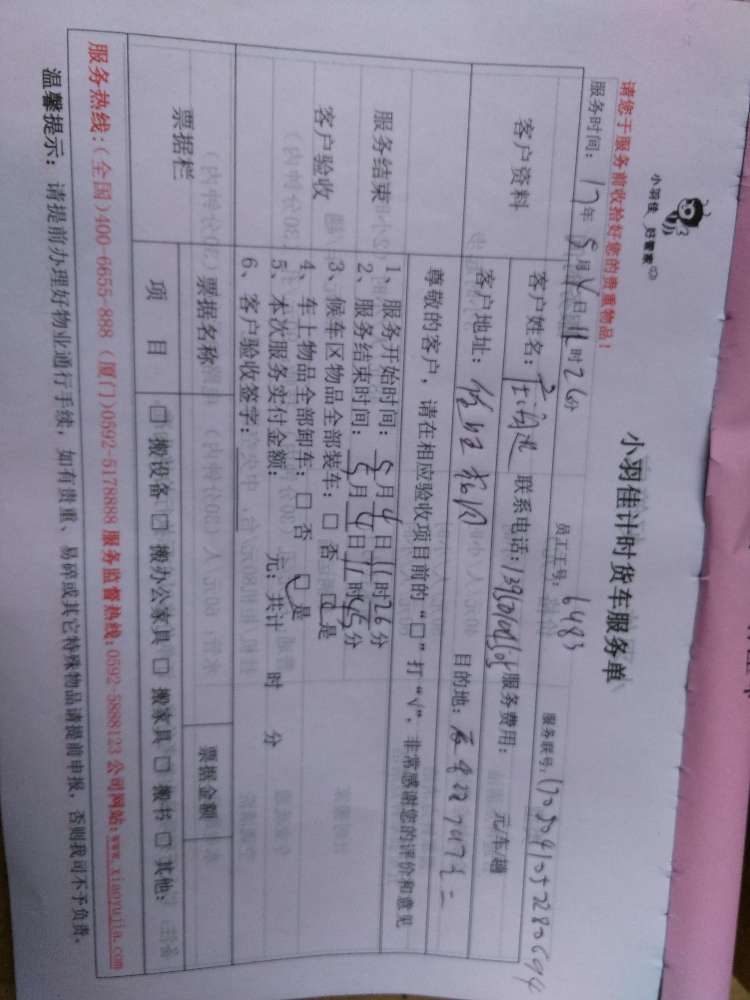 小羽佳 好管家
请您于服务前收拾好您的贵重物品!
小羽佳计时货车服务单
服务时间: 17年 5月4日11时26分 员工工号: 6483 服务联号:
客户资料
客户姓名: 联系电话: 服务费用: 元/车/趟
客户地址: 目的地:
服务结束
客户验收
尊敬的客户,请在相应验收项目前的“□”打“√”,非常感谢您的评价和意见
1、服务开始时间: 5月4日11时26分
2、服务结束时间: 5月4日11时45分
3、候车区物品全部装车: □ 否 □ 是
4、车上物品全部卸车: □ 否 □ 是
5、本次服务实付金额: 元; 共计 时 分
6、客户验收签字:
票据栏
票据名称 票据金额
项 目
□ 搬设备 □ 搬办公家具 □ 搬家具 □ 搬书 □ 其他:
服务热线:(全国)400-6655-888 (厦门)0592-5178888 服务监督热线:0592-5888123 公司网站:www.xiaoyujia.com
温馨提示: 请提前办理好物业通行手续,如有贵重、易碎或其它特殊物品请提前申报,否则我司不予负责。